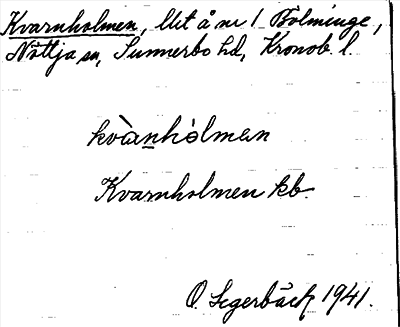 Kvarnholmen, lht å nr 1 Bolminge,
Nöttja sn, Sunnerbo hd, Kronob. l.
kvànhòlmen
Kvarnholmen kb.
O. Segerbäck 1941.